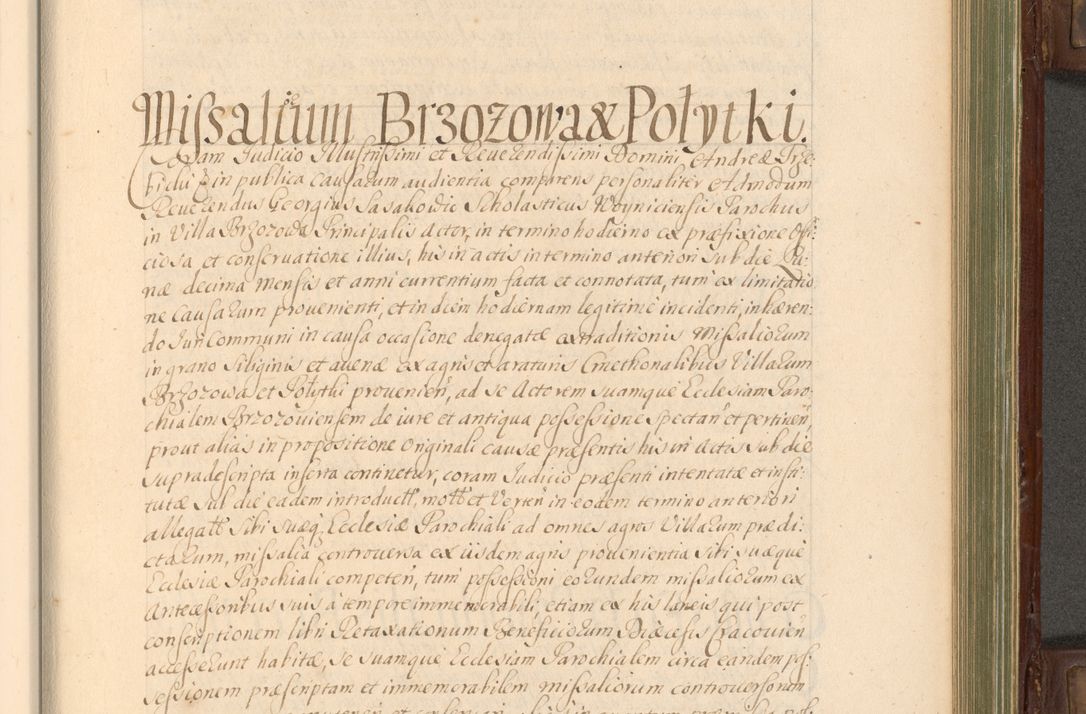 Missalium Brzozowa & Połytki.
Coram Iudicio Illustrissimi et Reverendissimi Domini, Andreæ Trze-
bicki in publica causarum audientia comparens personaliter Admodum
Reverendus Georgius Sasakowic Scholasticus Woyniciensis Parochus
in Villa Brzozowa Principalis Actor, in termino hodierno ex præfixione offi-
ciosa et conservatione illius, his in actis in termino anteriori sub die Lu-
næ decima mensis et anni currentium facta et connotata, tum ex limitatio-
ne causarum provenienti, et in diem hodiernam legitime incidenti, inhæren-
do Iuri communi in causa occasione denegatæ extraditionis Missaliorum
in grano siliginis et avenæ ex agris et araturis Cmethonalibus Villarum
Brzozowa et Połythi provenien, ad se Actorem suamque Ecclesiam Paro-
chialem Brzozoviensem de iure et antiqua possessione spectan et pertinen,
prout alias in propositione originali causæ præsentis his in Actis sub die
supradescripta inserta continetur, coram Iudicio præsenti intentatæ et insti-
tutæ sub die eadem introduct, mott et Verten in eodem termino anteriori
allegatt sibi suæq Ecclesiæ Parochiali ad omnes agros Villarum prædi-
ctarum, missalia controversa ex iisdem agris provenientia sibi suæque
Ecclesiæ Parochiali competen, tum possessioni eorundem missaliorum ex
Antecessoribus suis à tempore immemorabili, etiam ex his laneis qui post
conscriptionem libri Retaxationum Beneficiorum Diæcesis Cracovien
accesserunt habitæ, se suamque Ecclesiam Parochialem circa eandem pos-
sessionem præscriptam et immemorabilem missaliorum controversorum